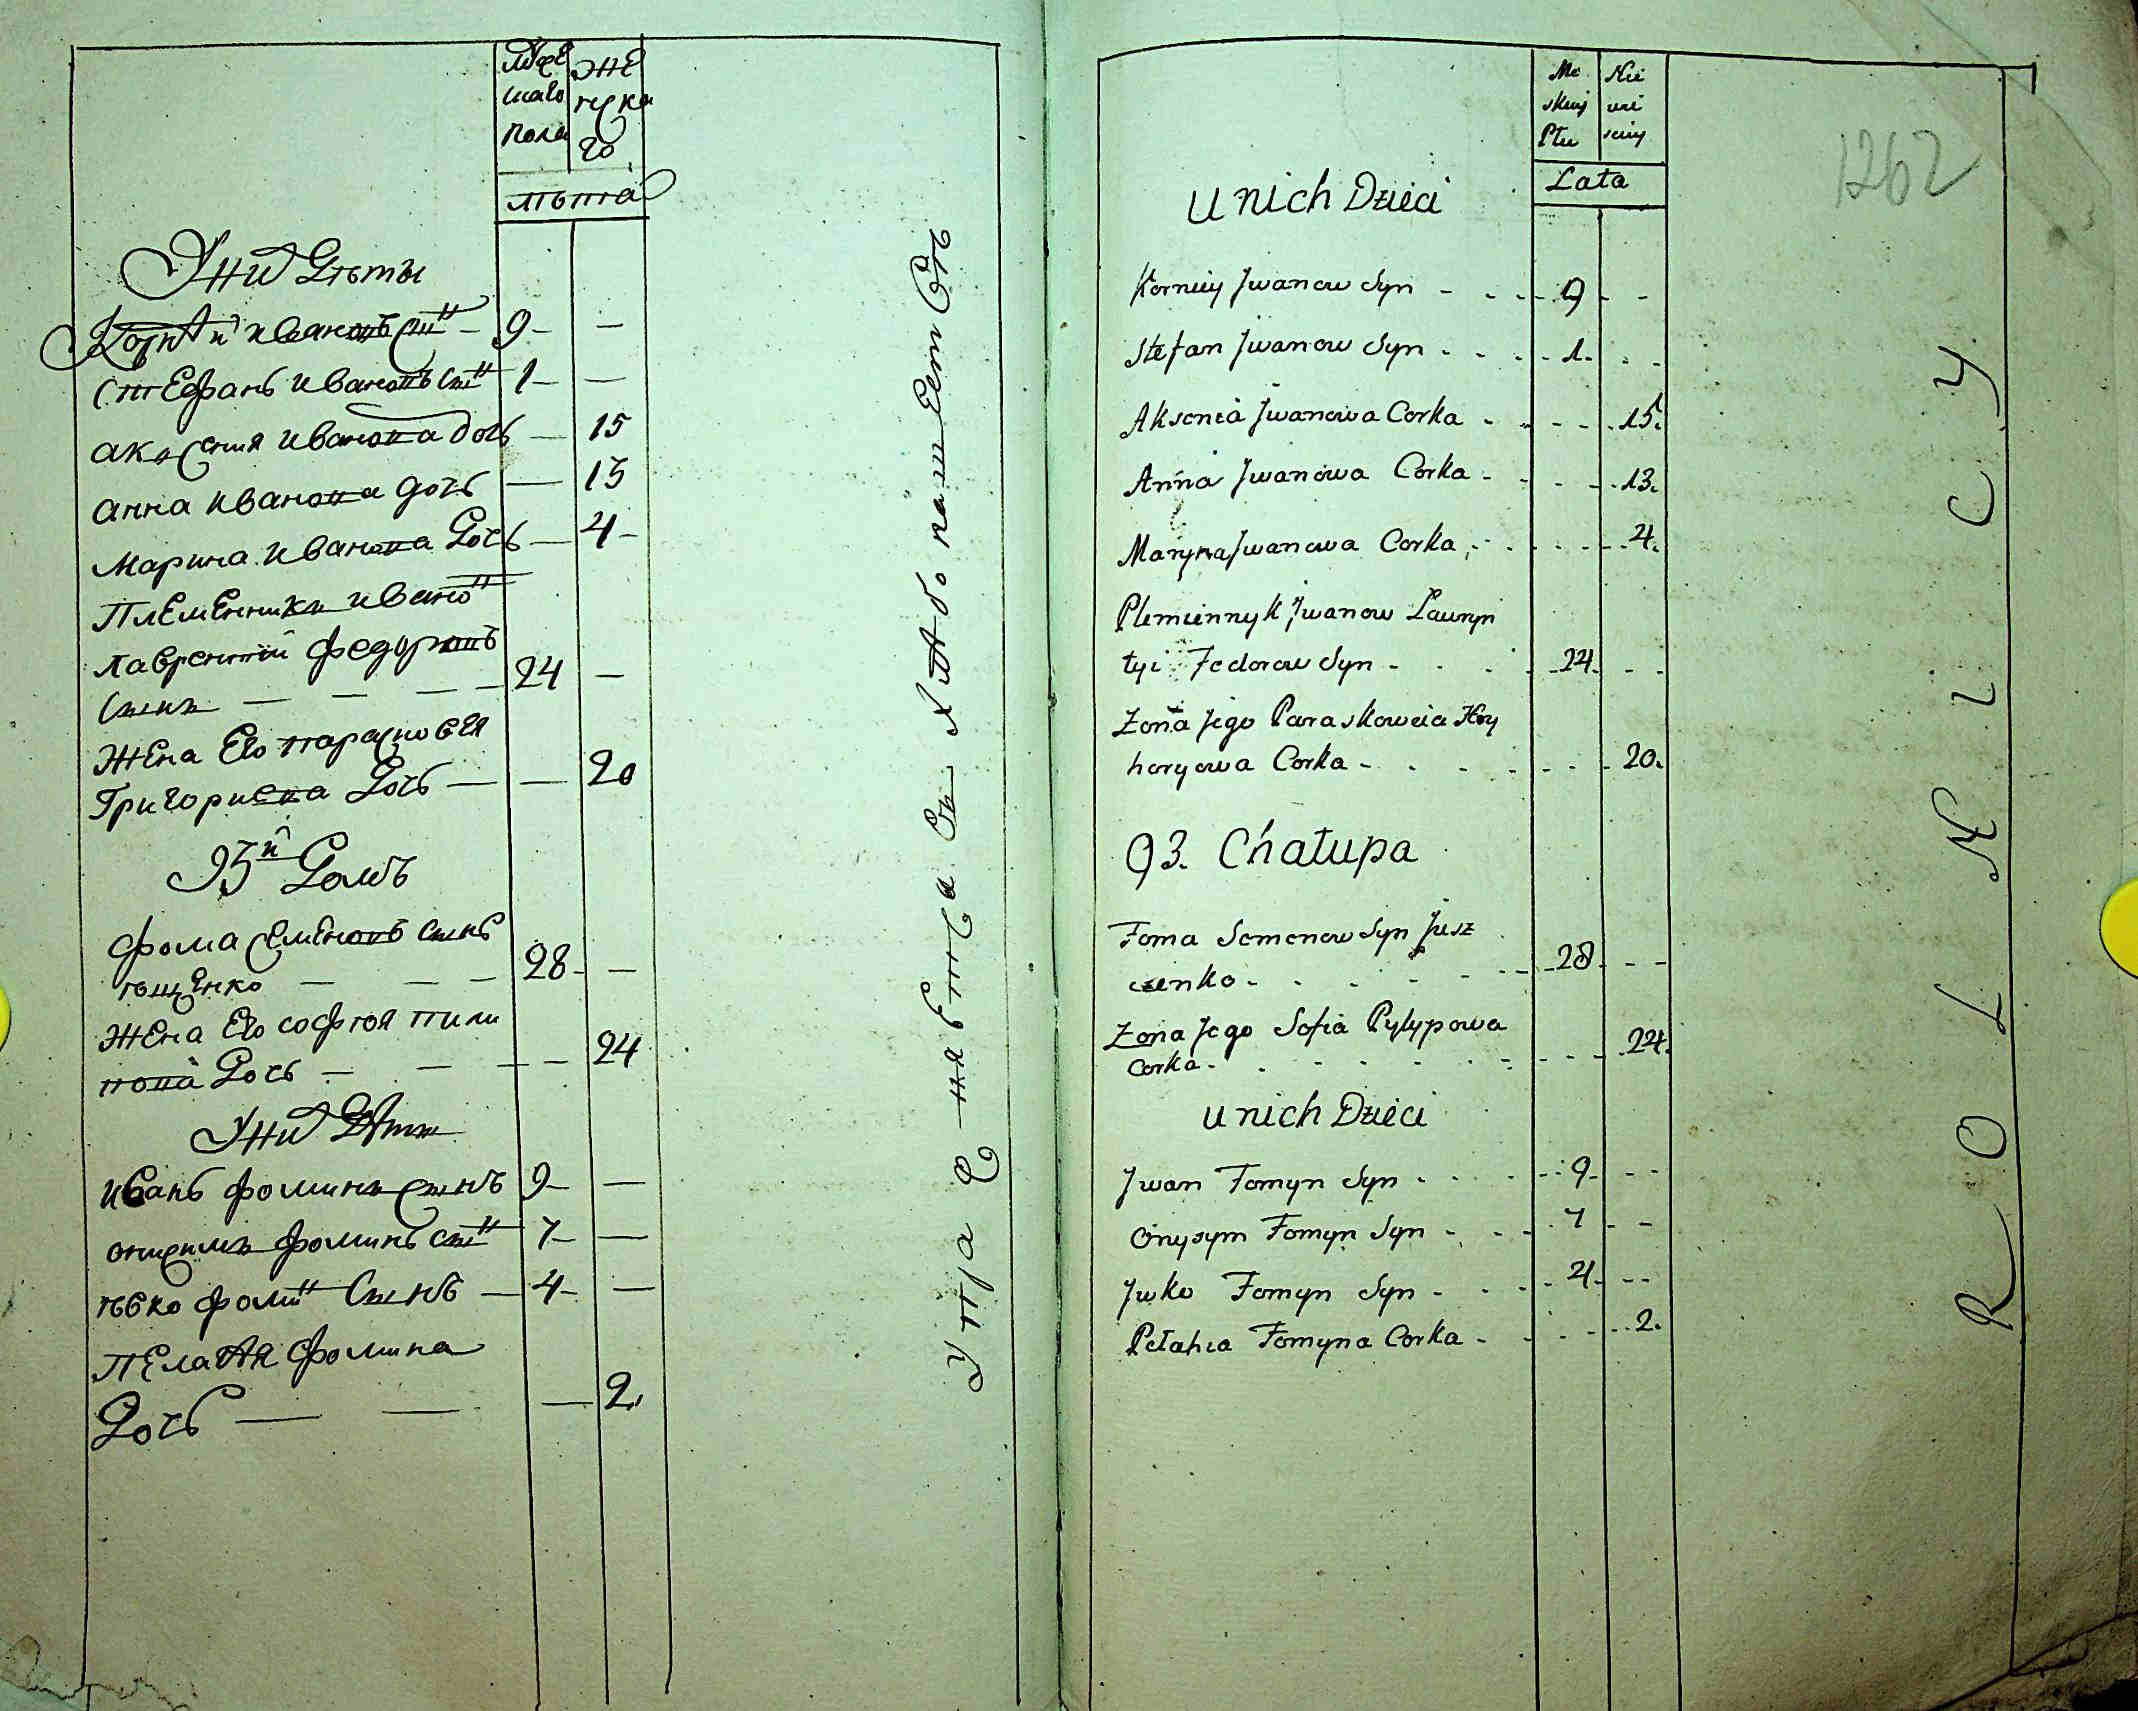 Муже
скаго
пола
Же
нска
го
лѣта
У них Дѣти
Корнѣй Ивановъ Сын — 9 — —
Стефанъ Ивановъ Сын 1 — —
Аксения Иванова дочь — 15
Анна Иванова дочь — 13
Марина Иванова Дочь — 4 —
Племенникъ Иванов
Лаврентий Федоровъ
Сынъ — — — — 24 —
Жена Его Парасковея
Григориева Дочь — — 20
93й Домъ
Фома Семеновъ сынъ
Ющенко — — — 28 —
Жена Его София Пили
пова Дочь — — — — 24
У них Дѣти
Иванъ Фоминъ сынъ 9 — —
Онисимъ Фоминъ сын 7 — —
Юско Фомин Сынъ — 4 — —
Пелагѣя Фомина
Дочь — — — 2
Me
skiej
Płu
Nie
wie
sciey
Lata
1262
U nich Dzieci
Korniey Jwanow Syn - - - - 9 - -
Stefan Jwanow Syn - - - - 1. - -
Aksenia Jwanowa Corka - - - - 15.
Anna Jwanowa Corka - - - - 13.
Maryna Jwanowa Corka - - - - 4.
Plemiennyk Jwanow Ławryn
tyi Fedorow Syn - - - - 24. - -
Zona Jego Paraskoweia Hry
horyowa Corka - - - - - 20.
93. Chałupa
Foma Semenow Syn Jusz
czenko - - - - - 28. - -
Zona Jego Sofia Pyłypowa
Corka - - - - - - 24.
U nich Dzieci
Jwan Fomyn Syn - - - - 9. - -
Onysym Fomyn Syn - - - 7 - -
Juko Fomyn Syn - - - 4. - -
Pełahia Fomyna Corka - - - - 2.
ROLNICY